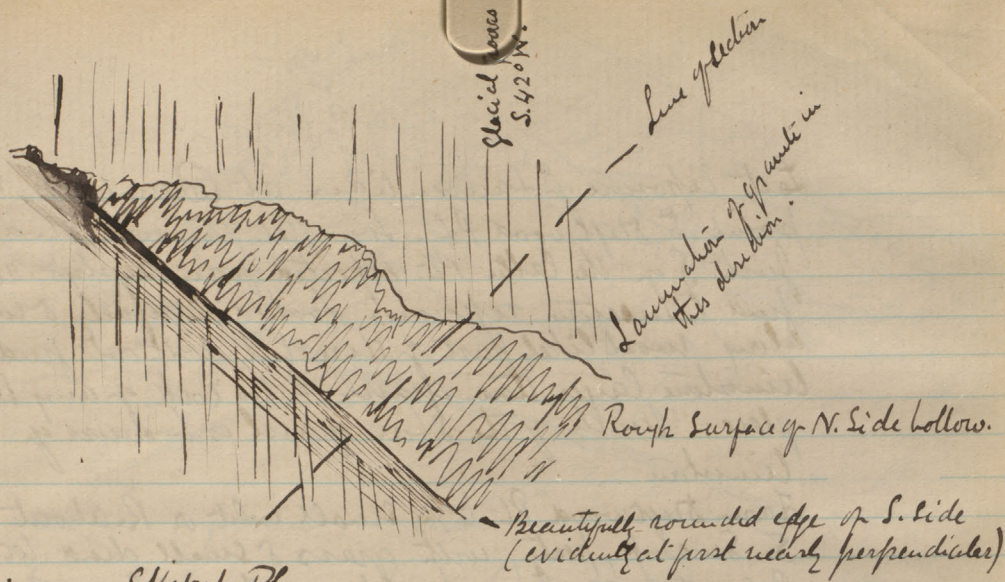 Glacial
S. 42° W.
Line of Section
Lamination of granite in
this direction.
Rough Surface of N. Side hollow.
Beautifully rounded edge of S. Side
(evidently at first nearly perpendicular)